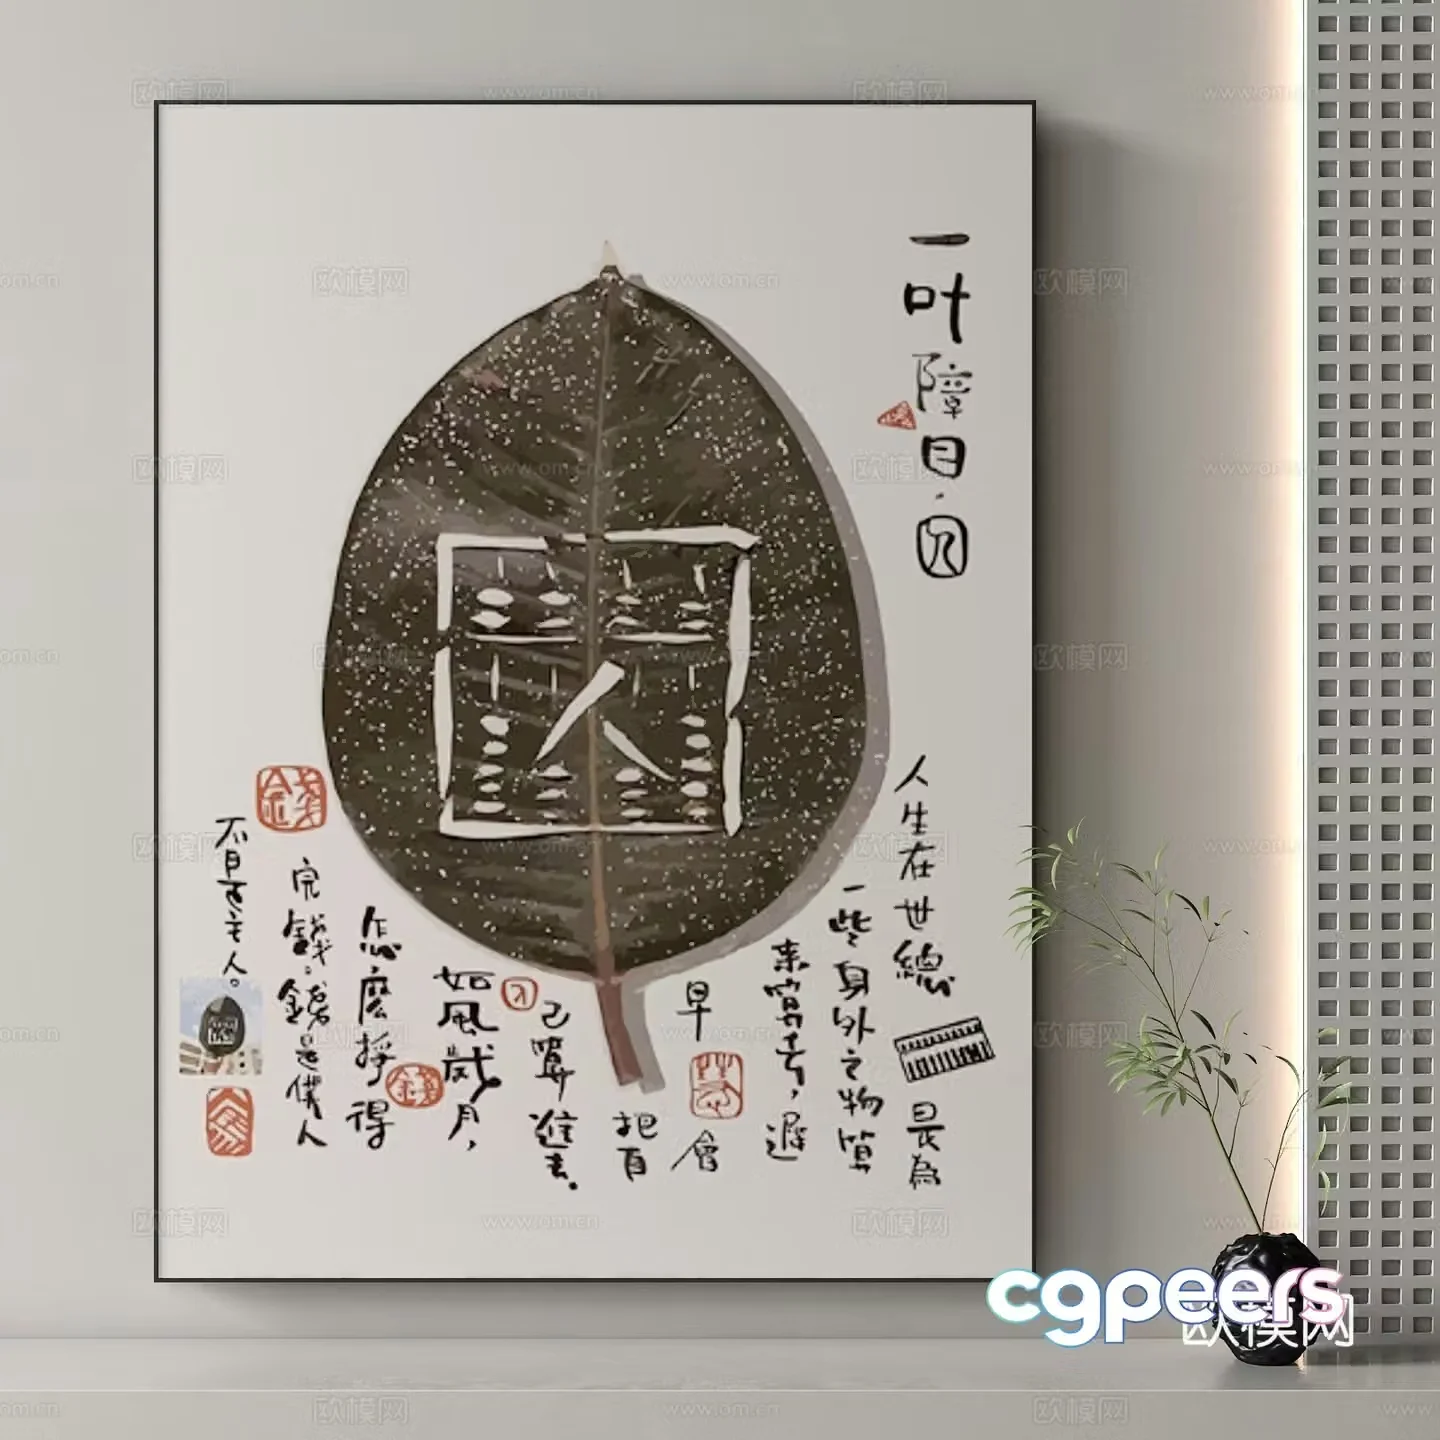 一叶障目·囚
人生在世總是為
一些身外之物算
來算去，遲
早會
把自
己算進去。
如風歲月，
怎麼掙得
完錢。錢是僕人
主人。
錢
錢
cgpeers
欧模网
www.om.cn